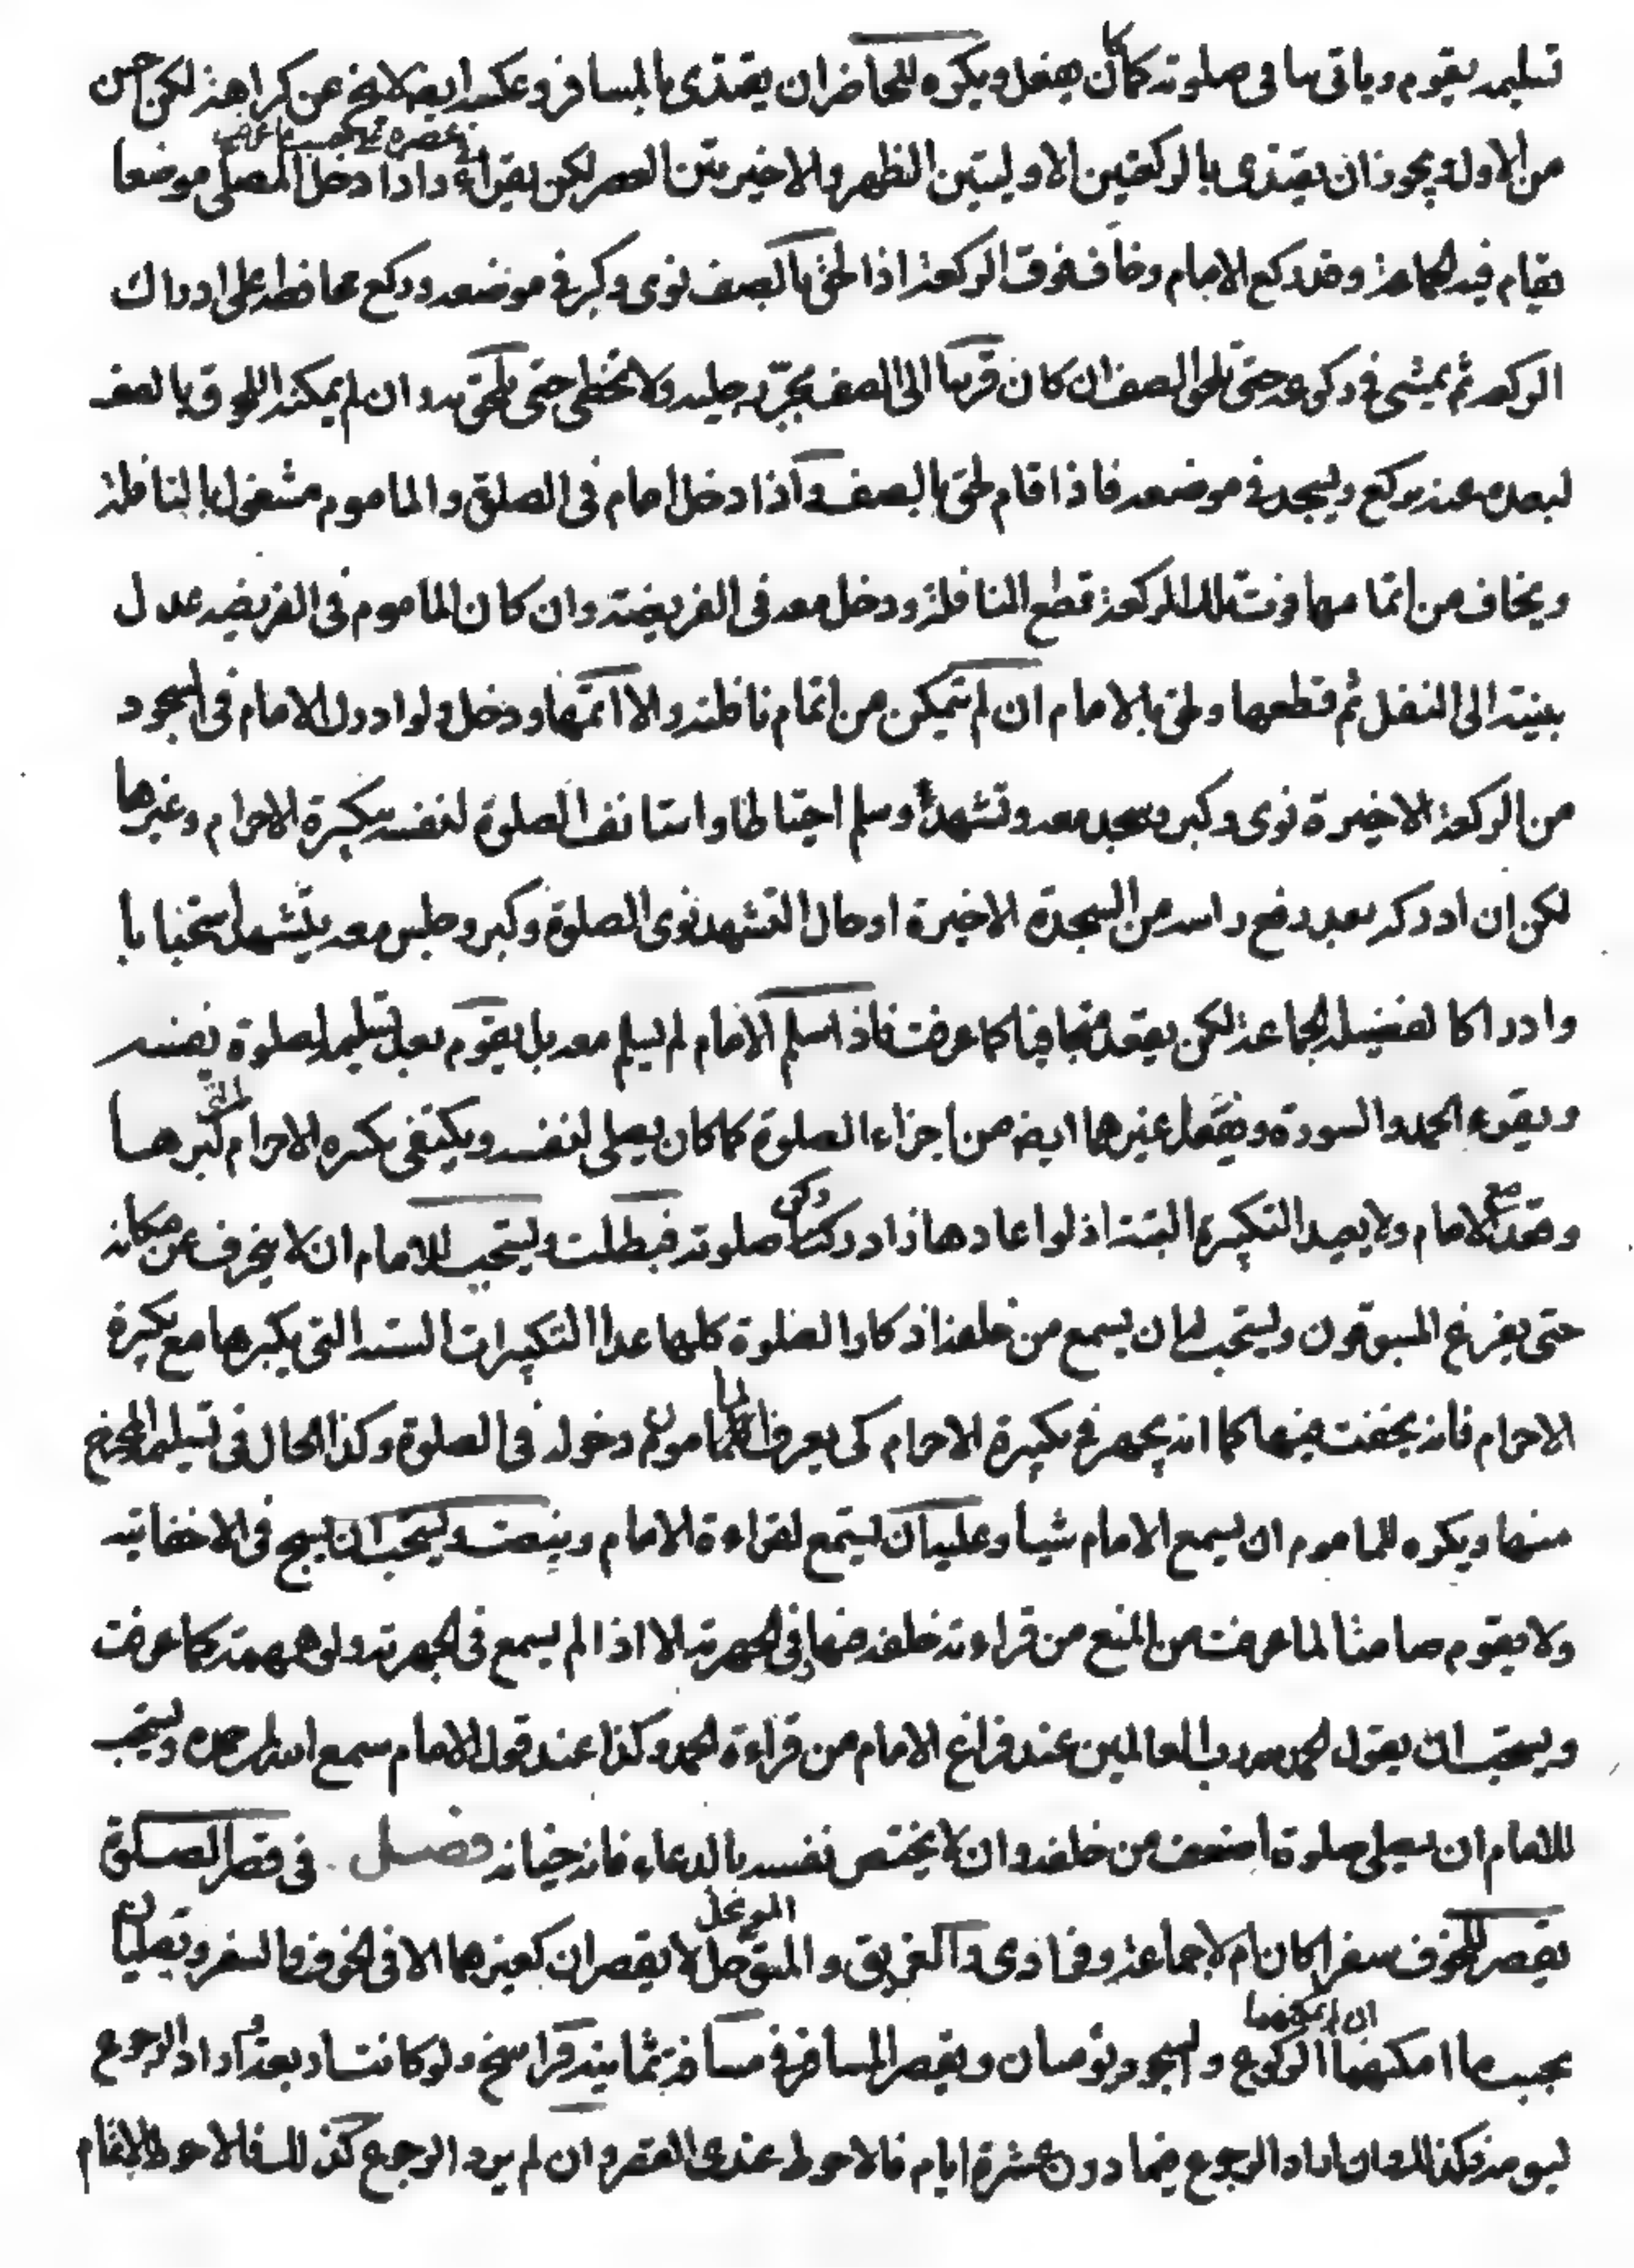 تسليمه يقوم وياتى بباقى صلوته كما كان يفعل ويكره للحاضر ان يقتدى بالمسافر وعكسه ايضا لايخ عن كراهة لكن احسن
من الاول ويجوز ان يقتدى بالركعتين الاوليتين الظهر والاخيرتين العصر لكن يقراء واذا دخل المصلى موضعا
يقام فيه الجماعة وقد ركع الامام وخاف فوت الركعة اذا لحق بالصف نوى وكبر فى موضعه وركع محافظة على ادراك
الركعة ثم يمشى فى ركوعه حتى يلحق الصف ان كان قريبا الى الصف يجرّ رجليه ولا يتخطى حتى يلحق به وان لم يمكنه اللحوق بالصف
لبعده عنه ركع ويسجد فى موضعه فاذا قام لحق بالصف واذا دخل امام فى الصلوة والماموم مشغول بالنافلة
ويخاف من اتمامها فوت تلك الركعة قطع النافلة ودخل معه فى الفريضة وان كان الماموم فى الفريضه عدل
بنيته الى النفل ثم قطعها ولحق بالامام ان لم يتمكن من اتمام نافلته والا اتمها ودخل ولو ادرك الامام فى السجود
من الركعة الاخيرة نوى وكبر وسجد معه وتشهد وسلم احتياطا واستانف الصلوة لنفسه بتكبيرة الاحرام وغيرها
لكن ان ادركه بعد رفع راسه من السجدة الاخيرة او حال التشهد نوى الصلوة وكبر وجلس معه يتشهد استحبابا
وادراكا لفضيلة الجماعة لكن يقعد متجافيا كما عرفت فاذا سلم الامام لم يسلم معه بل يقوم بعد تسليمه لصلوة نفسه
ويقرء الحمد والسورة ويفعل غيرهما ايضا من اجزاء الصلوة كما كان يصلى لنفسه ويكتفى بتكبيره الاحرام التى كبرها
وقعد مع الامام ولا يعيد التكبيرة البتة اذ لو اعادها زاد ركنا صلوته فبطلت ويستحب للامام ان لا ينحرف عن مكانه
حتى يفرغ المسبوقون ويستحب له ان يسمع من خلفه اذكار الصلوة كلها عدا التكبيرات الستة التى يكبرها مع تكبيرة
الاحرام فانه يخفت فيها كما انه يجهر فى تكبيرة الاحرام كى يعرف المامومون دخوله فى الصلوة وكذا الحال فى تسليمه المخرج
منها ويكره للماموم ان يسمع الامام شيا وعليه ان يستمع لقراءة الامام وينصت ويستحب ان يسبح فى الاخفاتيه
ولا يقوم صامتا لما عرفت من المنع من قراءته خلفه فيها وفى الجهرية الا اذا لم يسمع فى الجهرية ولو همهمة كما عرفت
ويستحب ان يقول الحمد لله رب العالمين عند فراغ الامام من قراءة الحمد وكذا عند قول الامام سمع الله لمن حمده ويستحب
للامام ان يصلى صلوة اضعف من خلفه وان لا يختص نفسه بالدعاء فانه خيانه فصل فى قصر الصلوة
يقصر للخوف سفرا كان ام لا جماعة وفرادى والغريق والمتوحل الموتحل لا يقصران كغيرهما الا فى الخوف والسفر ويصليان
بحسب ما امكنهما ان لم يمكنهما الركوع والسجود يوميان ويقصر المسافر فى مسافة ثمانية فراسخ ولو كانت اربعة واراد الرجوع
ليومه وكذا لو كان اراد الرجوع فيما دون عشرة ايام فالاحوط عندى القصر وان لم يرد الرجوع كذلك فالاحوط الاتمام